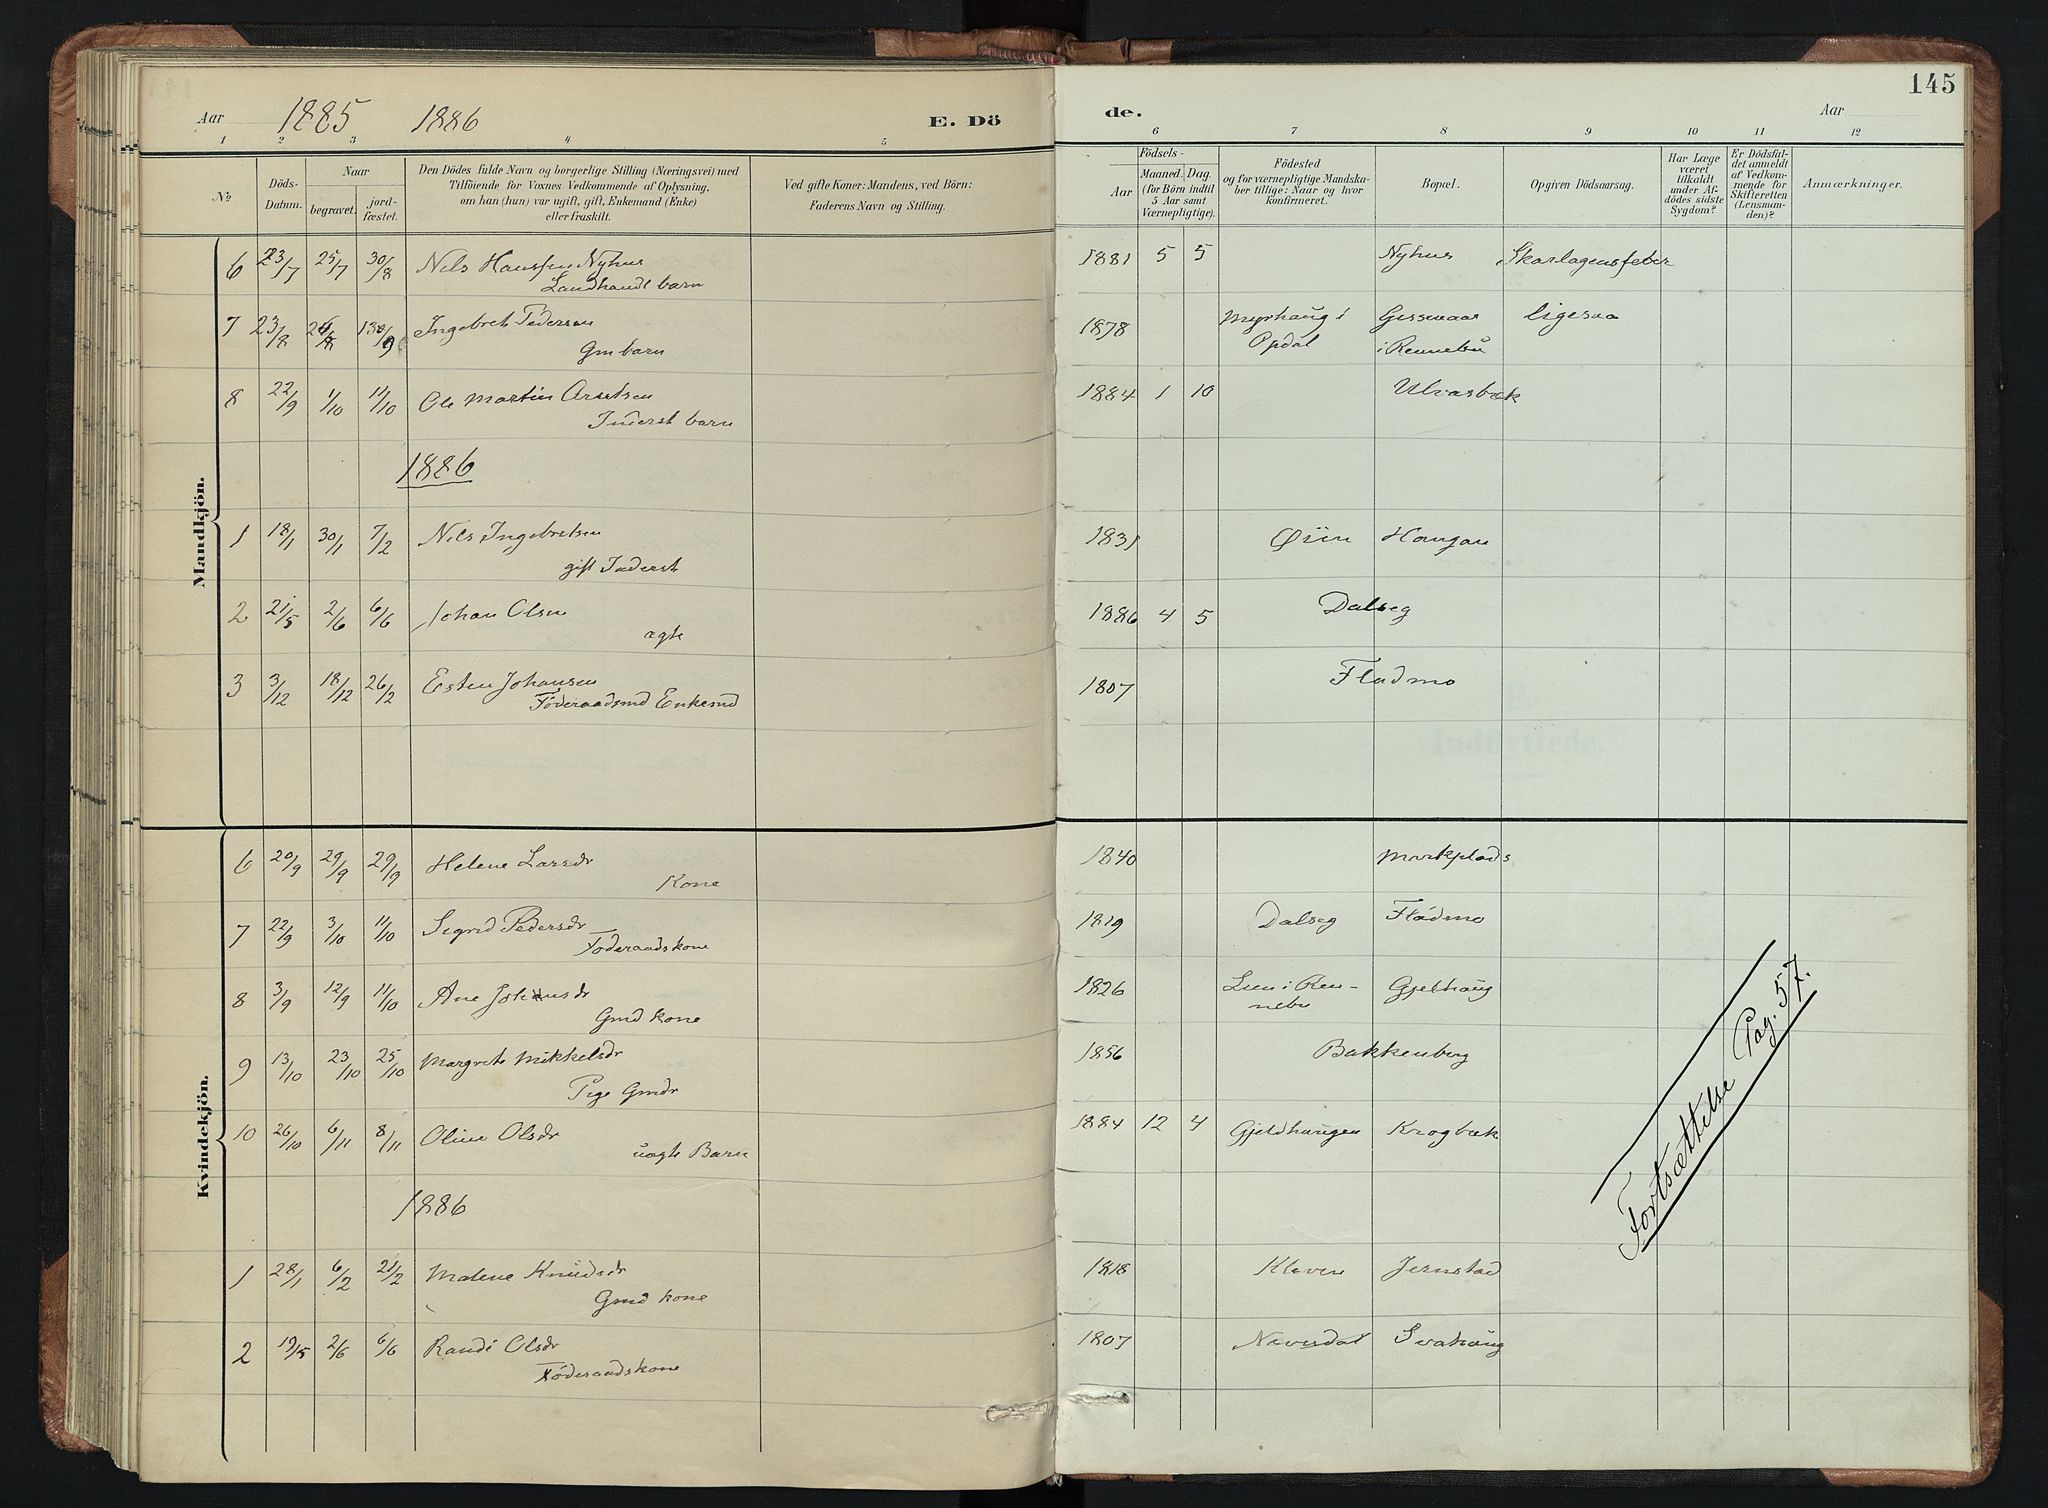 145
Aar 1885 1886 E. Dö de. Aar
1 2 3 4 5 6 7 8 9 10 11 12
№
Döds-Datum.
Naar
begravet.
jord-fæstet.
Den Dödes fulde Navn og borgerlige Stilling (Næringsvei) med
Tilföiende for Voxnes Vedkommende af Oplysning,
om han (hun) var ugift, gift, Enkemand (Enke)
eller fraskilt.
Ved gifte Koner: Mandens, ved Börn:
Faderens Navn og Stilling.
Födsels-
Aar
Maaned. Dag.
(for Börn indtil
5 Aar samt
Værnepligtige).
Födested
og for værnepligtige Mandska-
ber tillige: Naar og hvor
konfirmeret.
Bopæl.
Opgiven Dödsaarsag.
Har Læge
været
tilkaldt
under Af-
dödes sidste
Sygdom?
Er Dödsfal-
det anmeldt
af Vedkom-
mende for
Skifteretten
(Lensman-
den)?
Anmærkninger.
Mandkjön.
6 23/7 25/7 30/8 Nils Hansen Nyhus 1881 5 5 Nyhus Skarlagensfeber
Landhandl barn
7 23/8 9 Ingebret Pedersen 1878 Myrhaug i ligesaa
Gm barn Opdal i Rennebu
8 22/9 1/10 11/10 Ole Martin Arntsen 1884 1 10 Ulvasbæk
Inderst barn
1886
1 18/1 30/1 7/2 Nils Ingebretsen 1831 Øiin Haugan
gift Inderst
2 21/5 2/6 6/6 Johan Olsen 1886 4 5 Dalseg
ægte
3 3/12 18/12 26/2 Esten Johansen 1807 Fladmo
Føderaadsmd Enkemd
Kvindekjön.
6 20/9 29/9 29/9 Helene Larsdr 1840 Markplads
Kone
7 22/9 3/10 11/10 Sigrid Pedersdr 1819 Dalseg Fladmo
Føderaadskone
8 3/9 12/9 11/10 Ane Johansdr 1826 i Ren- Gjelhaug
Gmd kone nebu
9 13/10 23/10 25/10 Margrete Mikkelsdr 1856 Bakkenberg
Pige Gmdr
10 26/10 6/11 8/11 Oline Olsdr 1884 12 4 Gjeldhaugen Krogbæk
uægte Barn
1886
1 28/1 6/2 21/2 Malene Knudsdr 1818 Kleven Jernstad
Gmd kone
2 19/5 2/6 6/6 Randi Olsdr 1807 Neverdal Svahaug
Føderaadskone
Fortsættelse Pag. 57.